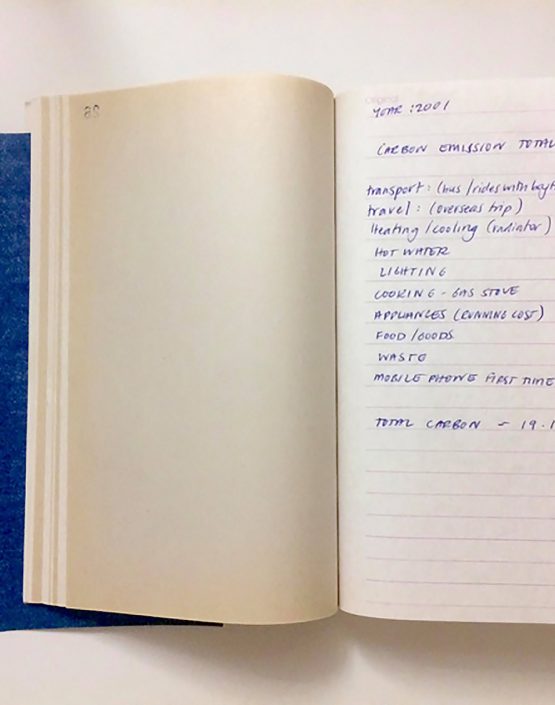 26
Original
YEAR : 2001
CARBON EMISSION TOTAL
transport : (bus / rides with
travel : (overseas trip)
Heating / cooling (radiator)
HOT WATER
LIGHTING
COOKING - GAS STOVE
APPLIANCES (RUNNING COST)
FOOD / GOODS
WASTE
MOBILE PHONE FIRST TIME
TOTAL CARBON - 19.1